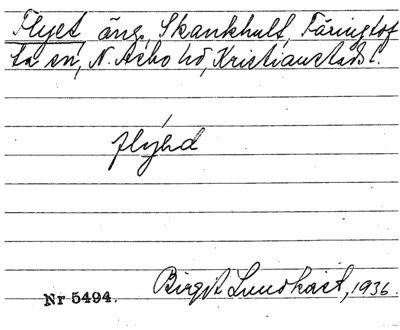 Flyet, äng, Skankhult, Färingtof
ta sn, N. Åsbo hd, Kristianstads l.
flýəd
Nr 5494.
Birgit Lundkvist, 1936.